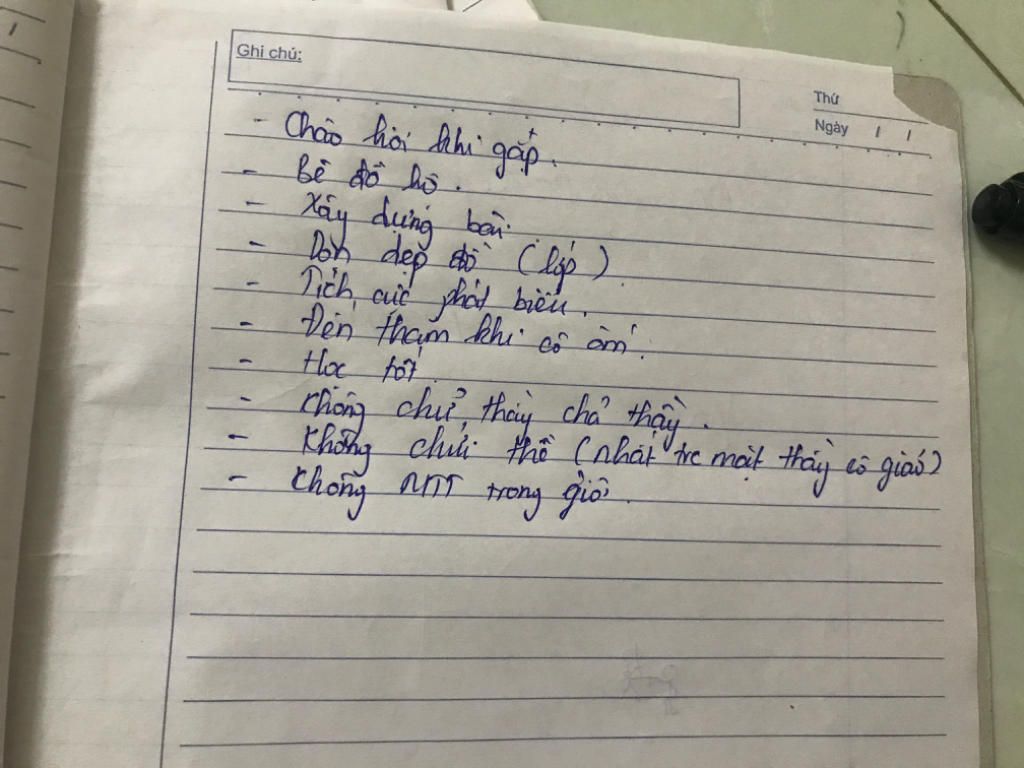 Ghi chú:
Thứ
Ngày / /
- Chào hỏi khi gặp.
- Bê đồ hộ.
- Xây dựng bài.
- Dọn dẹp đồ (lớp)
- Tích cực phát biểu.
- Đến thăm khi cô ốm.
- Học tốt.
- Không chửi thầy chả thầy.
- Không chửi thề (nhất trc mặt thầy cô giáo)
- Không NTT trong giờ.